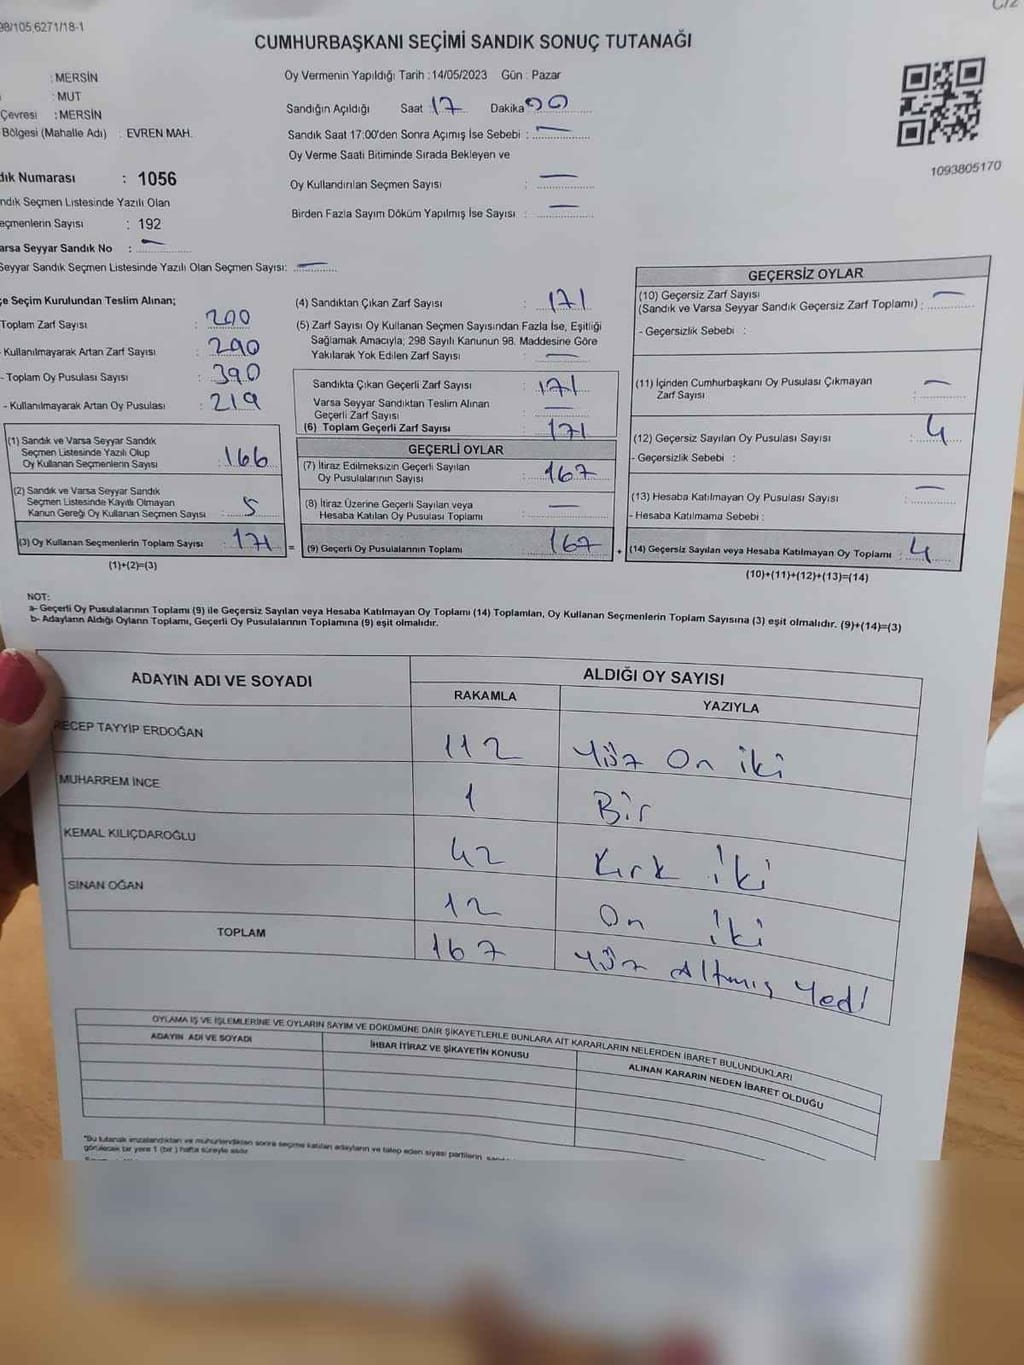 98/105,6271/18-1
C/2
CUMHURBAŞKANI SEÇİMİ SANDIK SONUÇ TUTANAĞI
: MERSİN
: MUT
Çevresi : MERSİN
Bölgesi (Mahalle Adı) : EVREN MAH.
dık Numarası : 1056
ndık Seçmen Listesinde Yazılı Olan
eçmenlerin Sayısı : 192
arsa Seyyar Sandık No : —
Seyyar Sandık Seçmen Listesinde Yazılı Olan Seçmen Sayısı: —
Oy Vermenin Yapıldığı Tarih : 14/05/2023 Gün : Pazar
Sandığın Açıldığı Saat 17 Dakika 00
Sandık Saat 17:00'den Sonra Açımış İse Sebebi : —
Oy Verme Saati Bitiminde Sırada Bekleyen ve
Oy Kullandırılan Seçmen Sayısı : —
Birden Fazla Sayım Döküm Yapılmış İse Sayısı : —
1093805170
çe Seçim Kurulundan Teslim Alınan;
Toplam Zarf Sayısı :
Kullanılmayarak Artan Zarf Sayısı :
- Toplam Oy Pusulası Sayısı : 390
- Kullanılmayarak Artan Oy Pusulası : 219
(1) Sandık ve Varsa Seyyar Sandık
Seçmen Listesinde Yazılı Olup
Oy Kullanan Seçmenlerin Sayısı : 166
(2) Sandık ve Varsa Seyyar Sandık
Seçmen Listesinde Kayıtlı Olmayan
Kanun Gereği Oy Kullanan Seçmen Sayısı : 5
(3) Oy Kullanan Seçmenlerin Toplam Sayısı : 171
(1)+(2)=(3)
(4) Sandıktan Çıkan Zarf Sayısı : 171
(5) Zarf Sayısı Oy Kullanan Seçmen Sayısından Fazla İse, Eşitliği
Sağlamak Amacıyla; 298 Sayılı Kanunun 98. Maddesine Göre
Yakılarak Yok Edilen Zarf Sayısı : —
Sandıkta Çıkan Geçerli Zarf Sayısı : 171
Varsa Seyyar Sandıktan Teslim Alınan
Geçerli Zarf Sayısı : —
(6) Toplam Geçerli Zarf Sayısı : 171
GEÇERLİ OYLAR
(7) İtiraz Edilmeksizin Geçerli Sayılan
Oy Pusulalarının Sayısı : 167
(8) İtiraz Üzerine Geçerli Sayılan veya
Hesaba Katılan Oy Pusulası Toplamı : —
= (9) Geçerli Oy Pusulalarının Toplamı : 167
GEÇERSİZ OYLAR
(10) Geçersiz Zarf Sayısı
(Sandık ve Varsa Seyyar Sandık Geçersiz Zarf Toplamı) : —
- Geçersizlik Sebebi :
(11) İçinden Cumhurbaşkanı Oy Pusulası Çıkmayan
Zarf Sayısı : —
(12) Geçersiz Sayılan Oy Pusulası Sayısı : 4
- Geçersizlik Sebebi :
(13) Hesaba Katılmayan Oy Pusulası Sayısı : —
- Hesaba Katılmama Sebebi :
+ (14) Geçersiz Sayılan veya Hesaba Katılmayan Oy Toplamı : 4
(10)+(11)+(12)+(13)=(14)
NOT:
a- Geçerli Oy Pusulalarının Toplamı (9) ile Geçersiz Sayılan veya Hesaba Katılmayan Oy Toplamı (14) Toplamları, Oy Kullanan Seçmenlerin Toplam Sayısına (3) eşit olmalıdır. (9)+(14)=(3)
b- Adayların Aldığı Oyların Toplamı, Geçerli Oy Pusulalarının Toplamına (9) eşit olmalıdır.
ADAYIN ADI VE SOYADI
ALDIĞI OY SAYISI
RAKAMLA YAZIYLA
RECEP TAYYİP ERDOĞAN 112 Yüz On iki
MUHARREM İNCE 1 Bir
KEMAL KILIÇDAROĞLU 42 Kırk iki
SİNAN OĞAN 12 On iki
TOPLAM 167 Yüz Altmış Yedi
OYLAMA İŞ VE İŞLEMLERİNE VE OYLARIN SAYIM VE DÖKÜMÜNE DAİR ŞİKAYETLERLE BUNLARA AİT KARARLARIN NELERDEN İBARET BULUNDUKLARI
ADAYIN ADI VE SOYADI
İHBAR İTİRAZ VE ŞİKAYETİN KONUSU
ALINAN KARARIN NEDEN İBARET OLDUĞU
"Bu tutanak imzalandıktan ve mühürlendikten sonra seçime katılan adayların ve talep eden siyasi partilerin
görülecek bir yere 1 (bir) hafta süreyle asılır